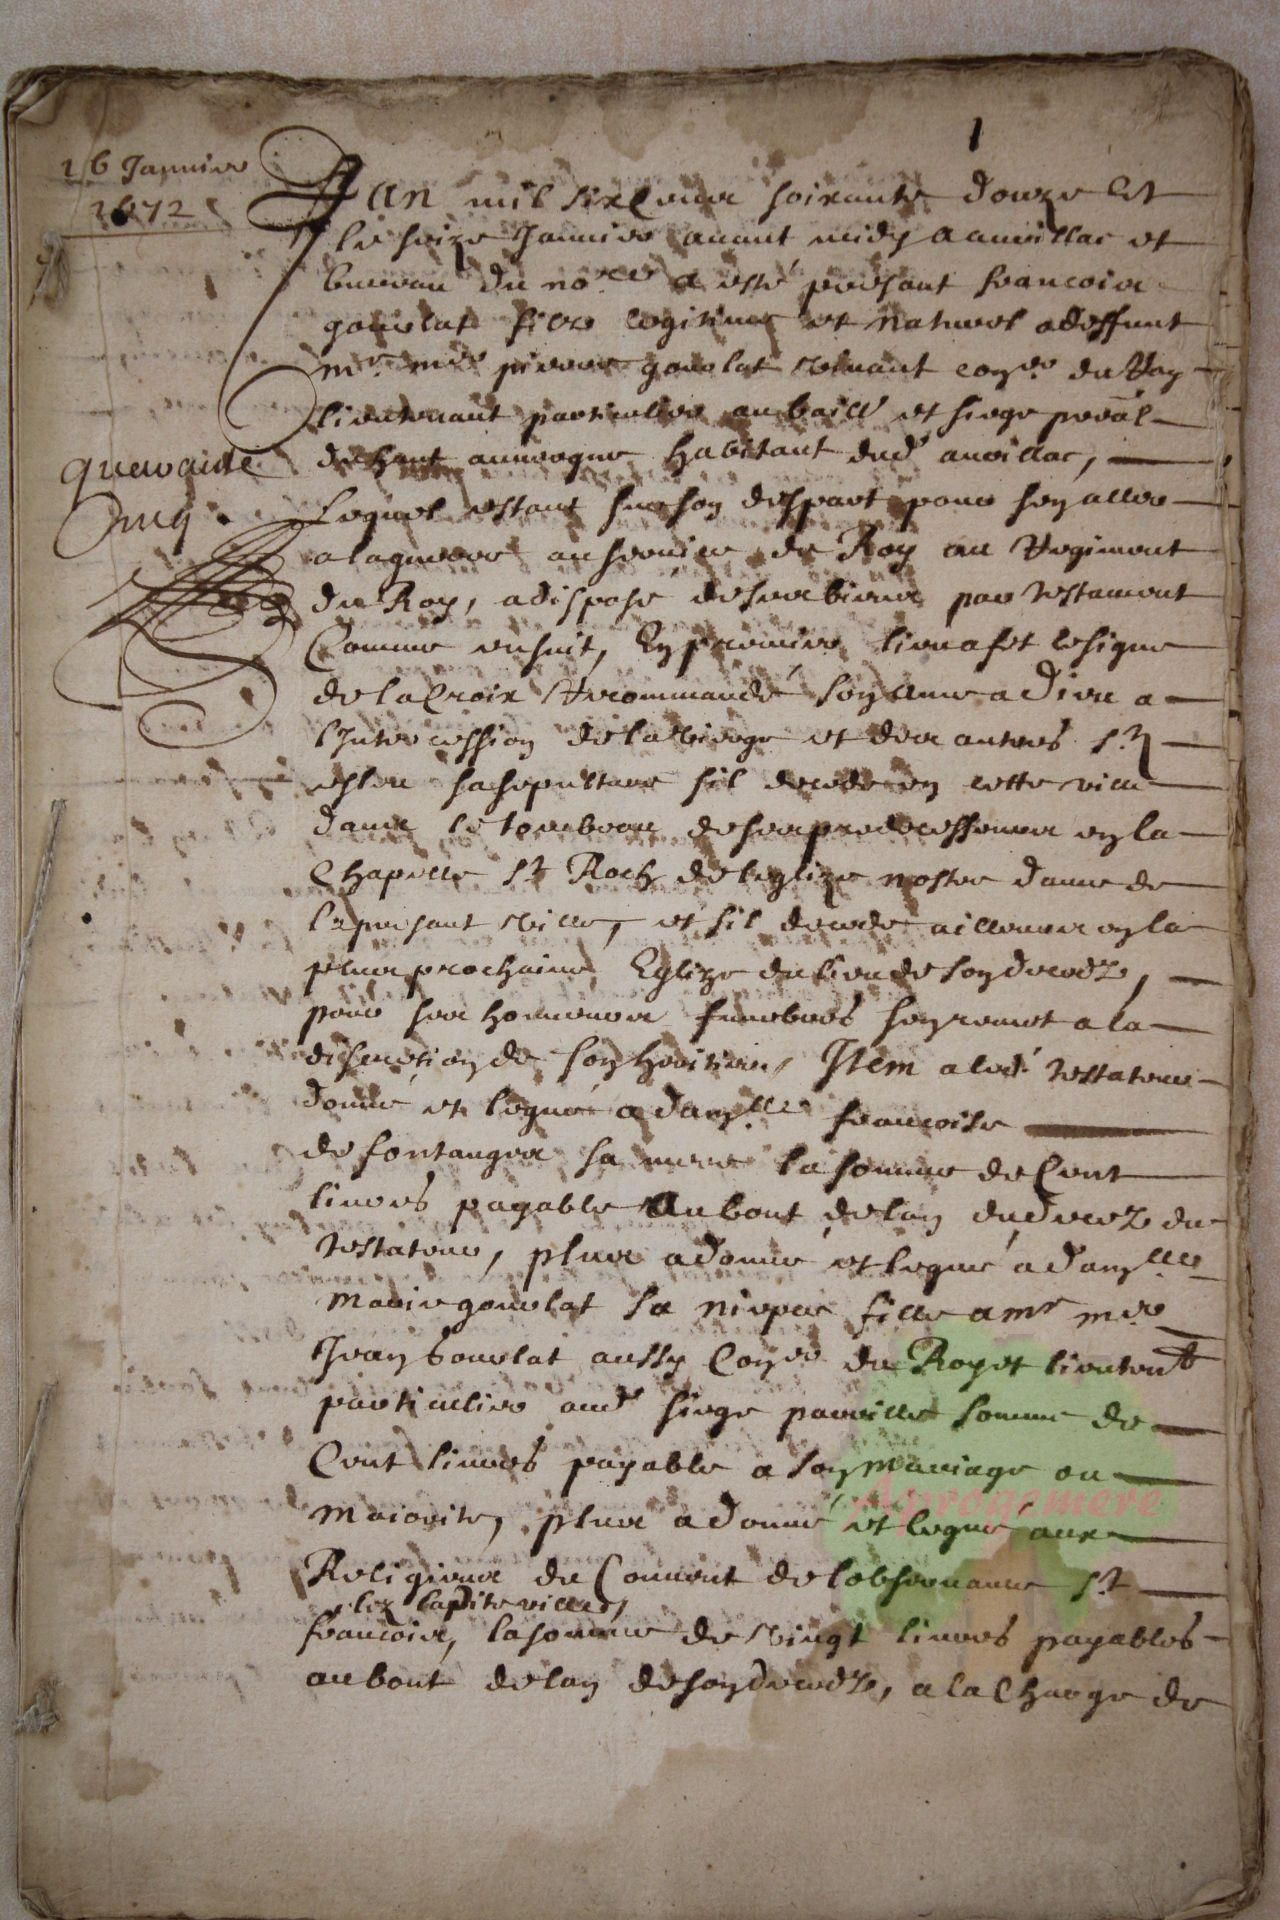 1
16 Januier
1672
Lan mil six cens soixante douze et
le seize Januier auant midy a aurillac et
bureau du no.re a esté presant francois
gourlat filz legitime et naturel a deffunt
mr. me pierre gourlat viuant con.er du Roy
lieutenant particulier au baill. et siege preal
de haut auuergne habitant dud. aurillac,
Lequel estant sur son despart pour s'en aller
a la guerre au seruice du Roy au Regiment
du Roy, a disposé de ses biens par testament
Comme ensuit, En premier lieu a fet le signe
de la Croix Recommandé son ame a Dieu a
l'Intercession de la vierge et des autres sts
esleu sa sepulture sil decede en cette ville
dans le tombeau de ses predecesseurs en la
Chapelle st Roch de leglize nostre dame de
la presant ville, et sil decede ailleurs en la
plus prochaine Eglize du lieu de son decedz,
pour ses honneurs funebres s'en remet a la
discretion de son heritier, Item a led. testateur
donné et legué a dam.lle francoise
de fontanges sa mere la somme de Cent
liures payable au bout de lan dud decez du
testateur, plus a donné et legué a dam.lle
marie gourlat sa niepce fille a mr me
Jean Gourlat aussy Con.er du Roy et lieutent
particulier aud. siege pareille somme de
Cent liures payable a son mariage ou
maiorite, plus a donné et legué aux
Religieux du Conuent de lobseruance st
lez ladite ville,
francois, la somme de vingt liures payables
au bout de lan de son decedz, a la Charge de
Aprogemere